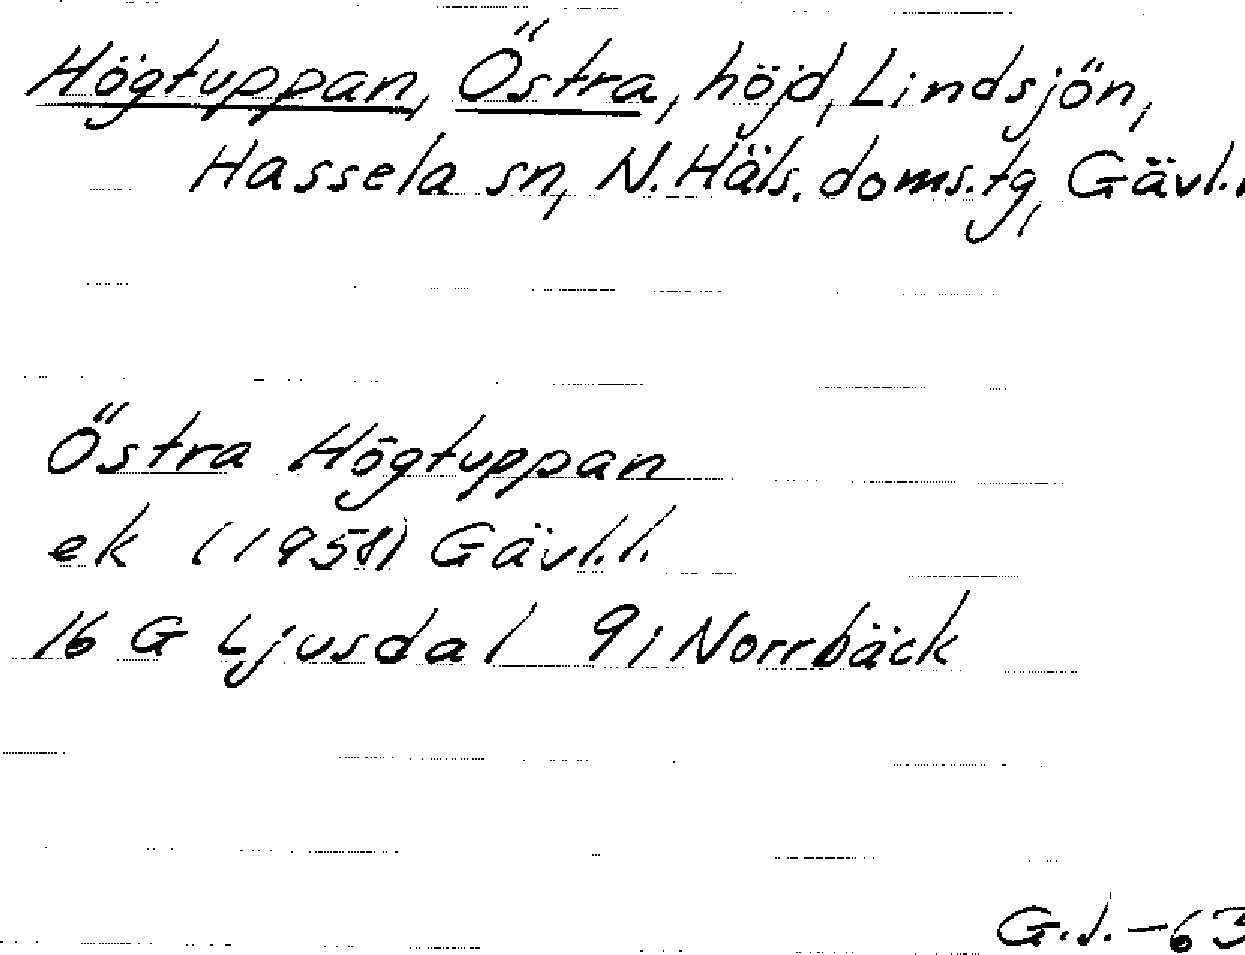 Högtuppan, Östra, höjd, Lindsjön,
Hassela sn, N. Häls. doms.tg, Gävl.l.
Östra Högtuppan
ek (1958) Gävl.l.
16 G Ljusdal 9, Norrbäck
G.J. -63